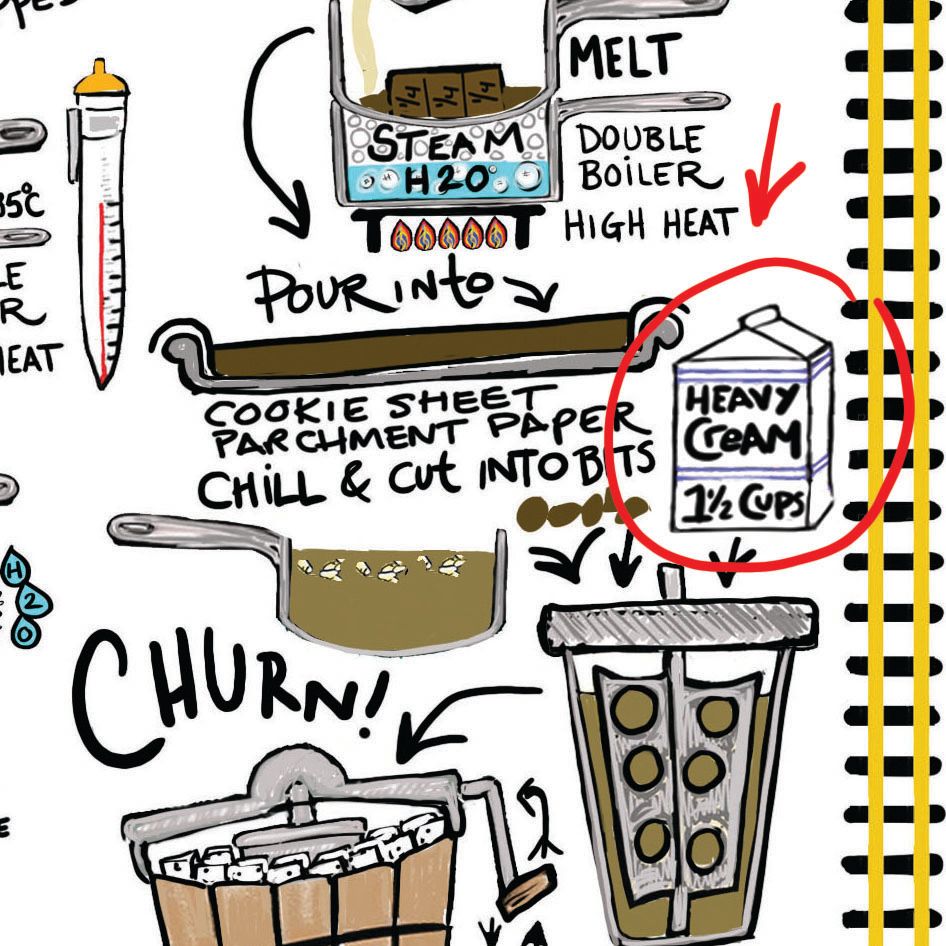 MELT
1/4 1/4 1/4
STEAM
H2O
DOUBLE
BOiLER
HIGH HEAT
35°C
POUR INto
HEAT
COOKIE SHEET
PARCHMENT PAPER
CHiLL & Cut INTO BITS
HEAVY
CReAM
1½ CUPS
H
2
O
CHURN!